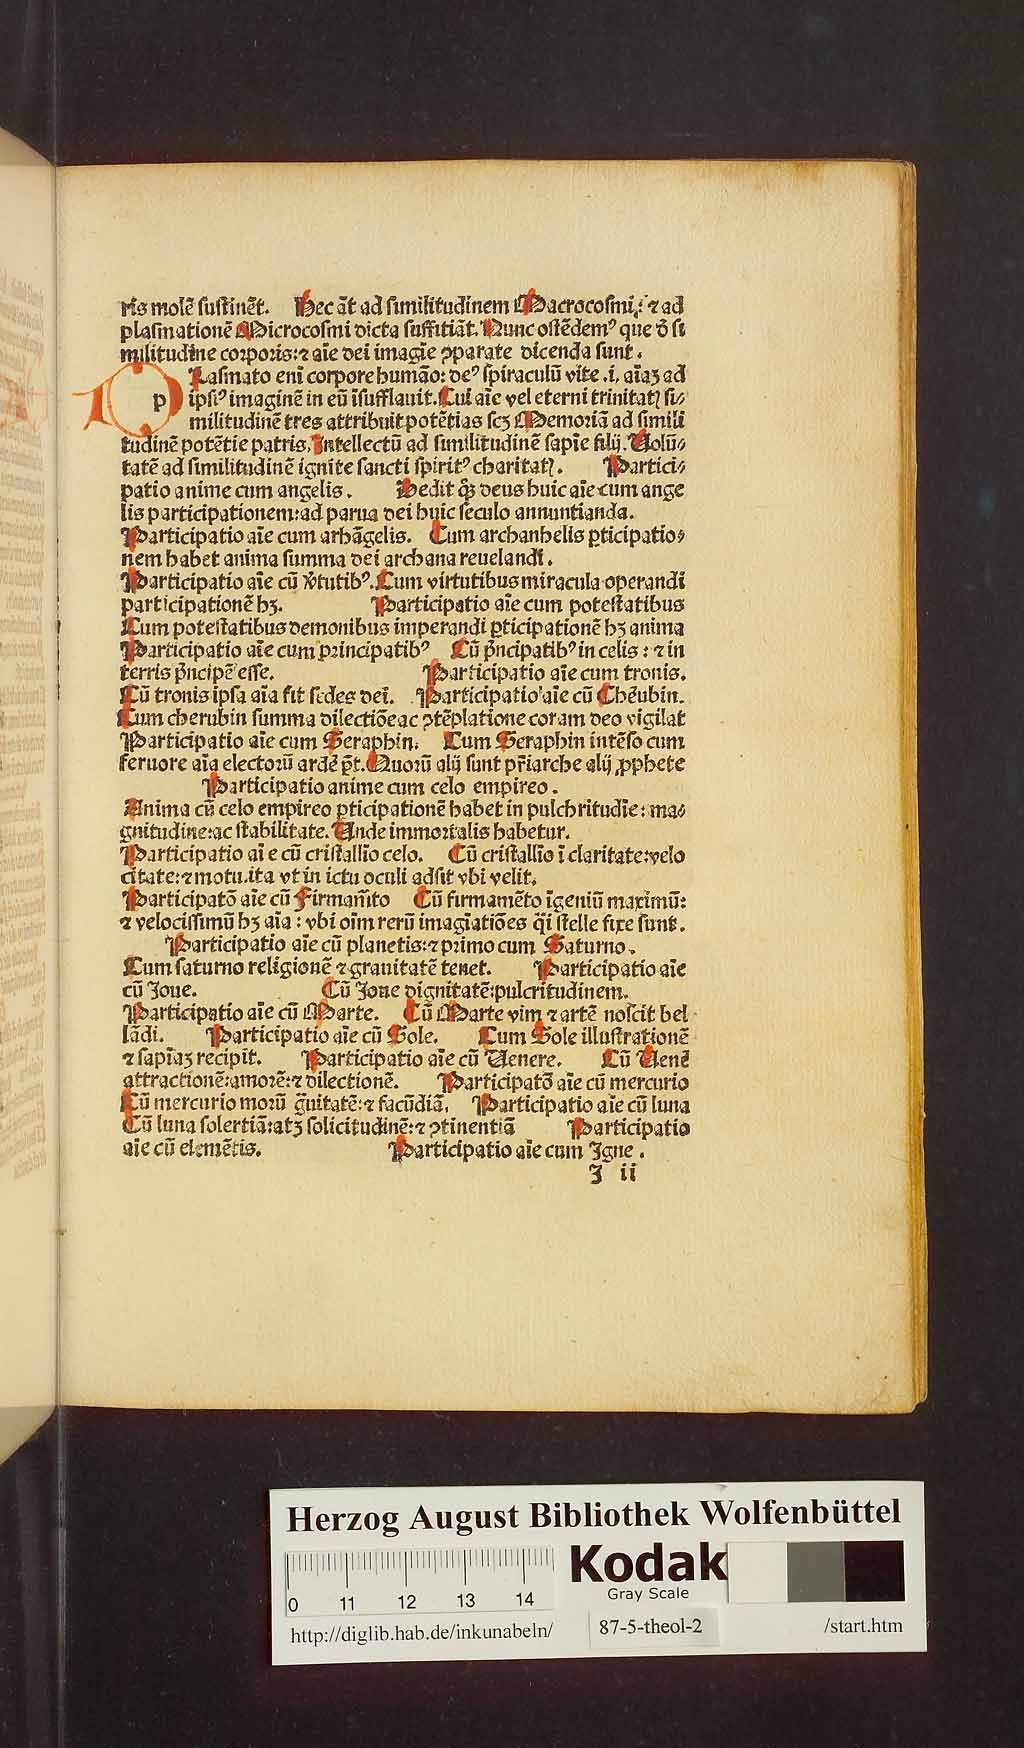 ris molē sustinēt. Hec āt ad similitudinem Macrocosmi: ⁊ ad
plasmationē Microcosmi dicta suffitiāt. Nunc ostēdemꝰ que ō si
militudine corporis: ⁊ aīe dei imagīe ꝯparate dicenda sunt.
p Lasmato eni corpore humāo: deꝰ spiraculū vite .i. aīaꝫ ad
ipsiꝰ imaginē in eū īsufflauit. Cui aīe vel eterni trinitatꝭ si⸗
militudinē tres attribuit potētias scꝫ Memoriā ad simili
tudinē potētie patris. Intellectū ad similitudinē sapīe filij. Uolū⸗
tatē ad similitudinē ignite sancti spiritꝰ charitatꝭ. Partici⸗
patio anime cum angelis. Dedit qꝫ deus huic aīe cum ange
lis participationem: ad parua dei huic seculo annuntianda.
Participatio aīe cum arhāgelis. Cum archanhelis ꝑticipatio⸗
nem habet anima summa dei archana reuelandi.
Participatio aīe cū v̄tutibꝰ. Cum virtutibus miracula operandi
participationē hꝫ. Participatio aīe cum potestatibus
Cum potestatibus demonibus imperandi ꝑticipationē hꝫ anima
Participatio aīe cum principatibꝰ Cū p̄ncipatibꝰ in celis: ⁊ in
terris p̄ncipē esse. Participatio aīe cum tronis.
Cū tronis ipsa aīa sit sedes dei. Participatio aīe cū Cherubin.
Cum cherubin summa dilectiōe ac ꝯtēplatione coram deo vigilat
Participatio aīe cum Seraphin. Cum Seraphin intēso cum
feruore aīa electorū ardē p̄t. Quorū alij sunt pr̄iarche alij ꝓphete
Participatio anime cum celo empireo.
Anima cū celo empireo ꝑticipationē habet in pulchritudīe: ma⸗
gnitudine: ac stabilitate. Unde immortalis habetur.
Participatio aī e cū cristallīo celo. Cū cristallīo ī claritate: velo
citate: ⁊ motu. ita vt in ictu oculi adsit vbi velit.
Participatō aīe cū Firmam̄to Cū firmamēto īgeniū maximū:
⁊ velocissimū hꝫ aīa: vbi oīm rerū imagīatiōes q̄i stelle fixe sunt.
Participatio aīe cū planetis: ⁊ primo cum Saturno.
Cum saturno religionē ⁊ grauitatē tenet. Participatio aīe
cū Joue. Cū Joue dignitatē: pulcritudinem.
Participatio aīe cū Marte. Cū Marte vim ⁊ artē noscit bel
lādi. Participatio aīe cū Sole. Cum Sole illustrationē
⁊ sapīaꝫ recipit. Participatio aīe cū Uenere. Cū Uenē
attractionē: amorē: ⁊ dilectionē. Participatō aīe cū mercurio
Cū mercurio morū g̃uitatē: ⁊ facūdiā. Participatio aīe cū luna
Cū luna solertiā: atꝫ solicitudinē: ⁊ ꝯtinentiā Participatio
aīe cū elemētis. Participatio aīe cum Igne.
J ii
Herzog August Bibliothek Wolfenbüttel
Kodak
Gray Scale
0 11 12 13 14
http://diglib.hab.de/inkunabeln/ 87-5-theol-2 /start.htm